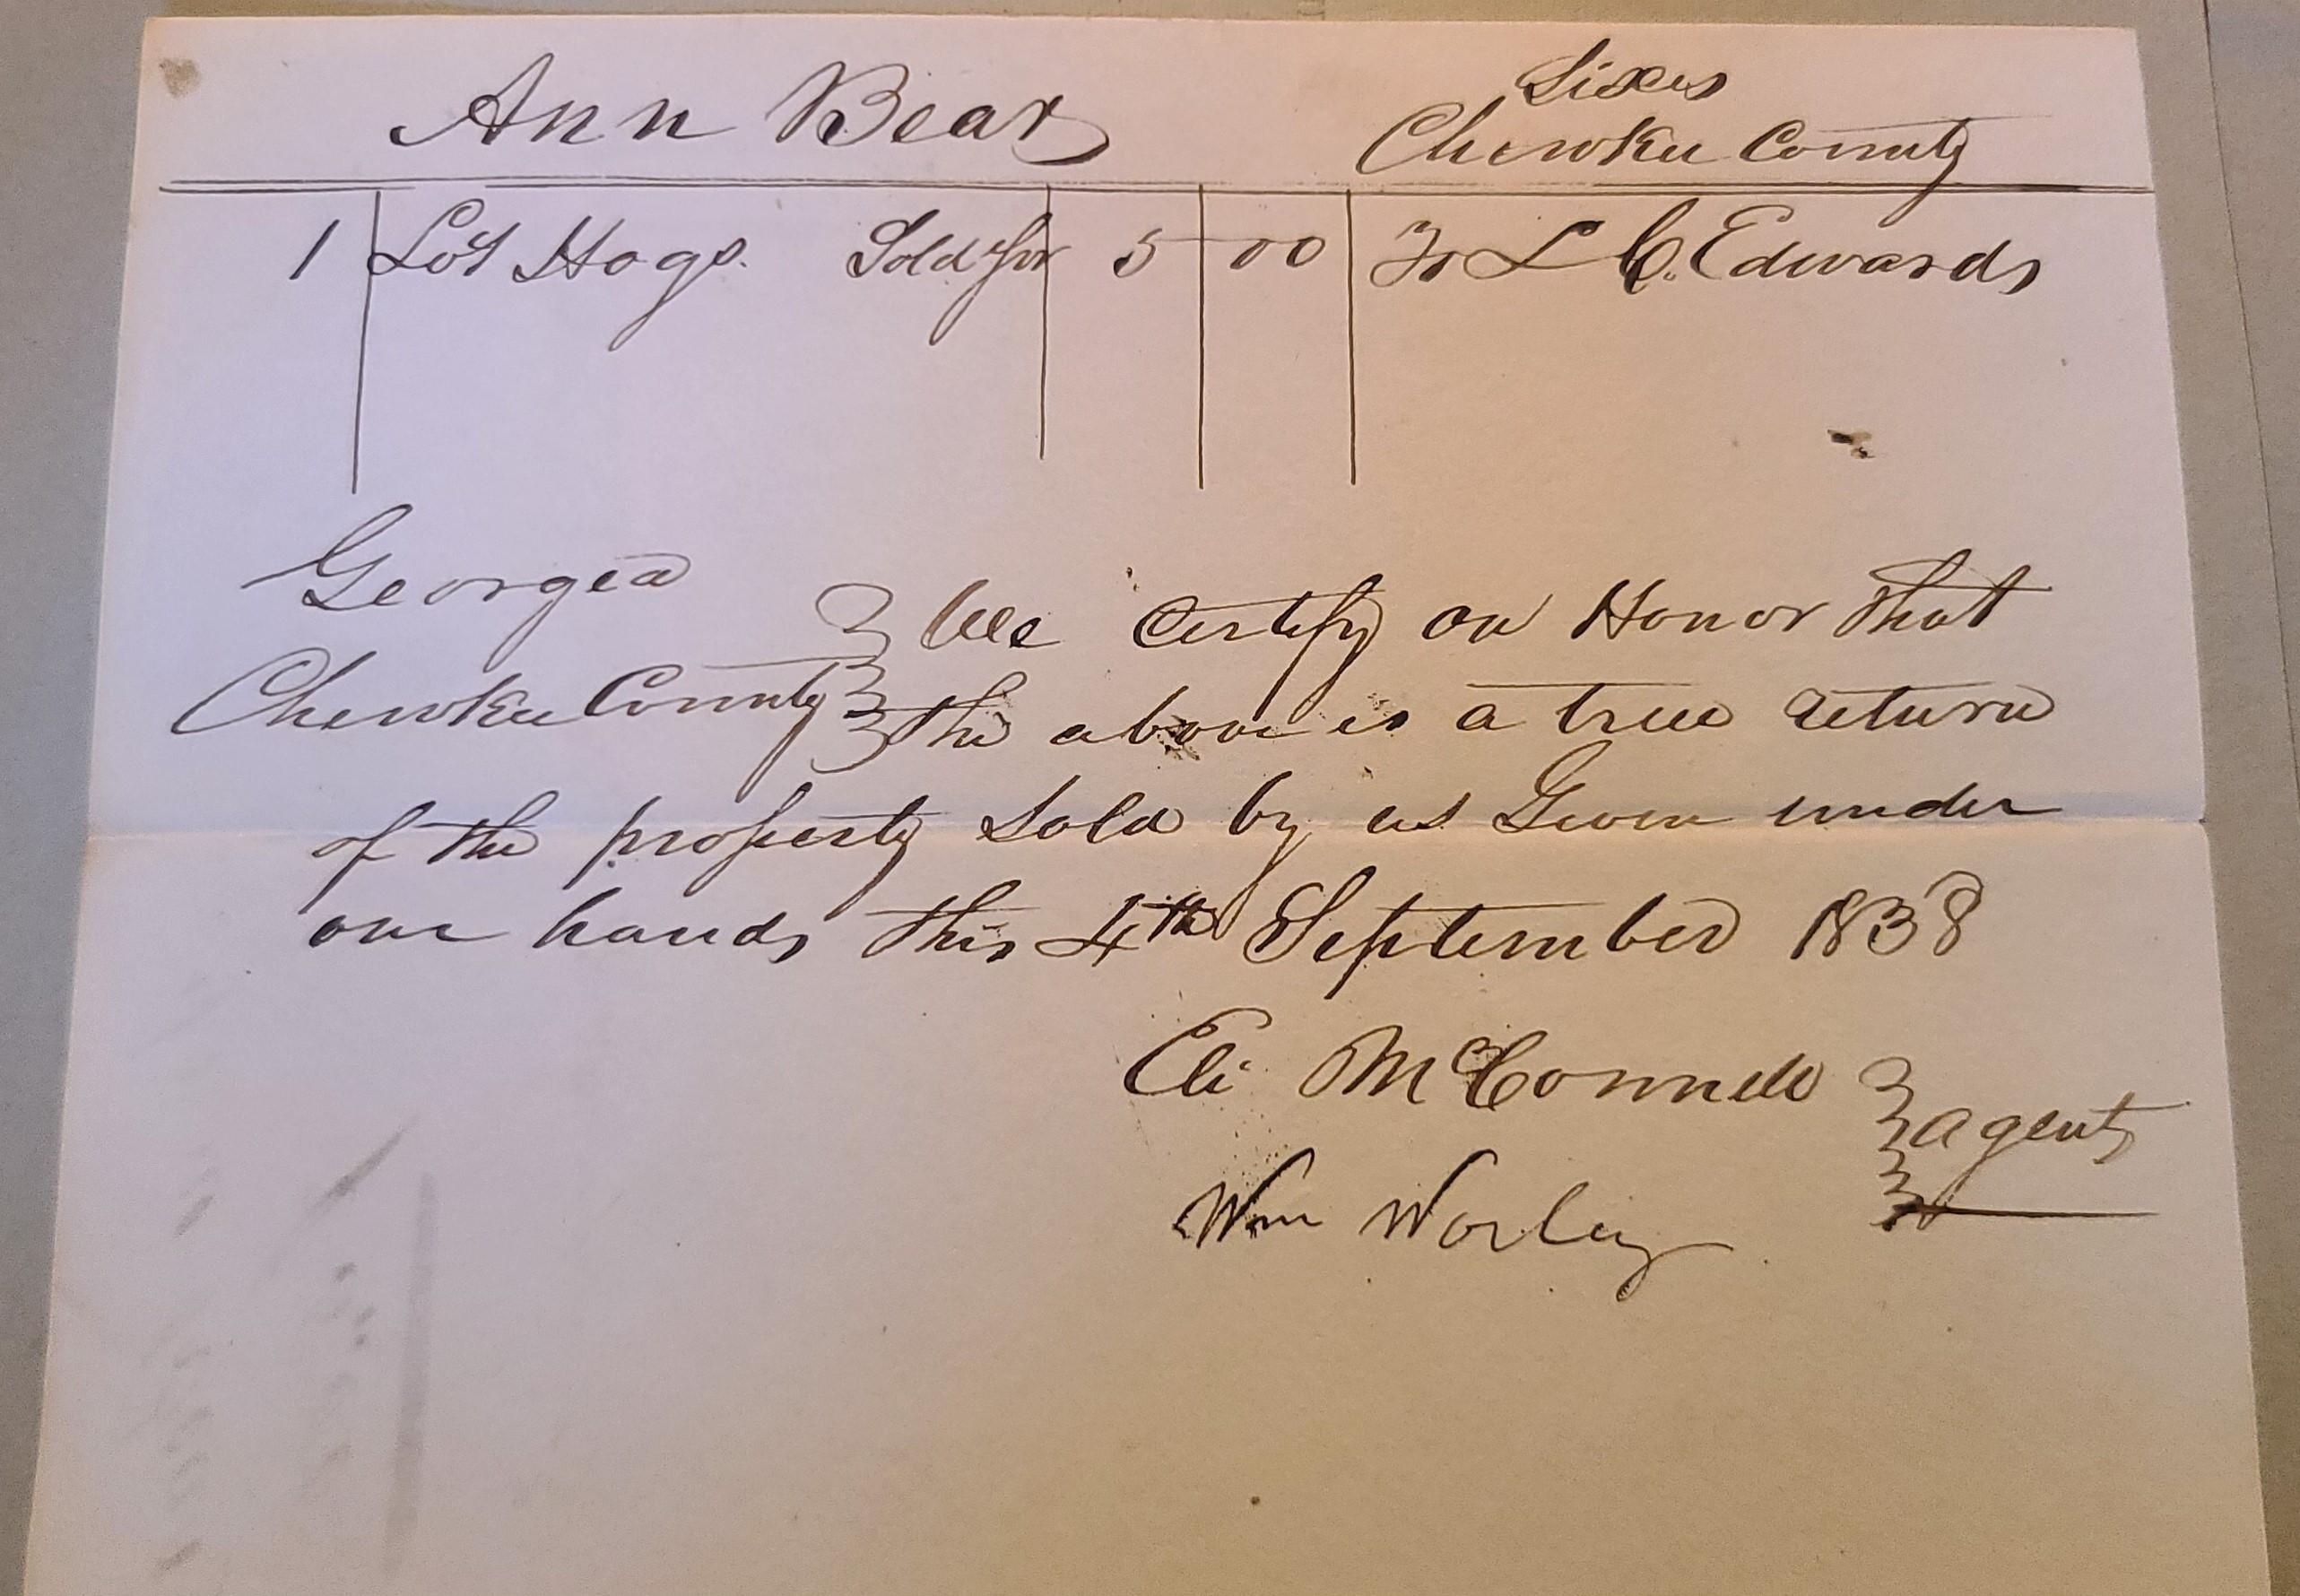 Ann Bear
Sixes
Cherokee County
1 Lot Hogs. Sold for 5 00 To L C. Edwards
Georgia
Cherokee County
We certify on Honor that
the above is a true return
of the property sold by us Given under
our hands this 4th September 1838
Eli McConnell
agents
Wm Worley